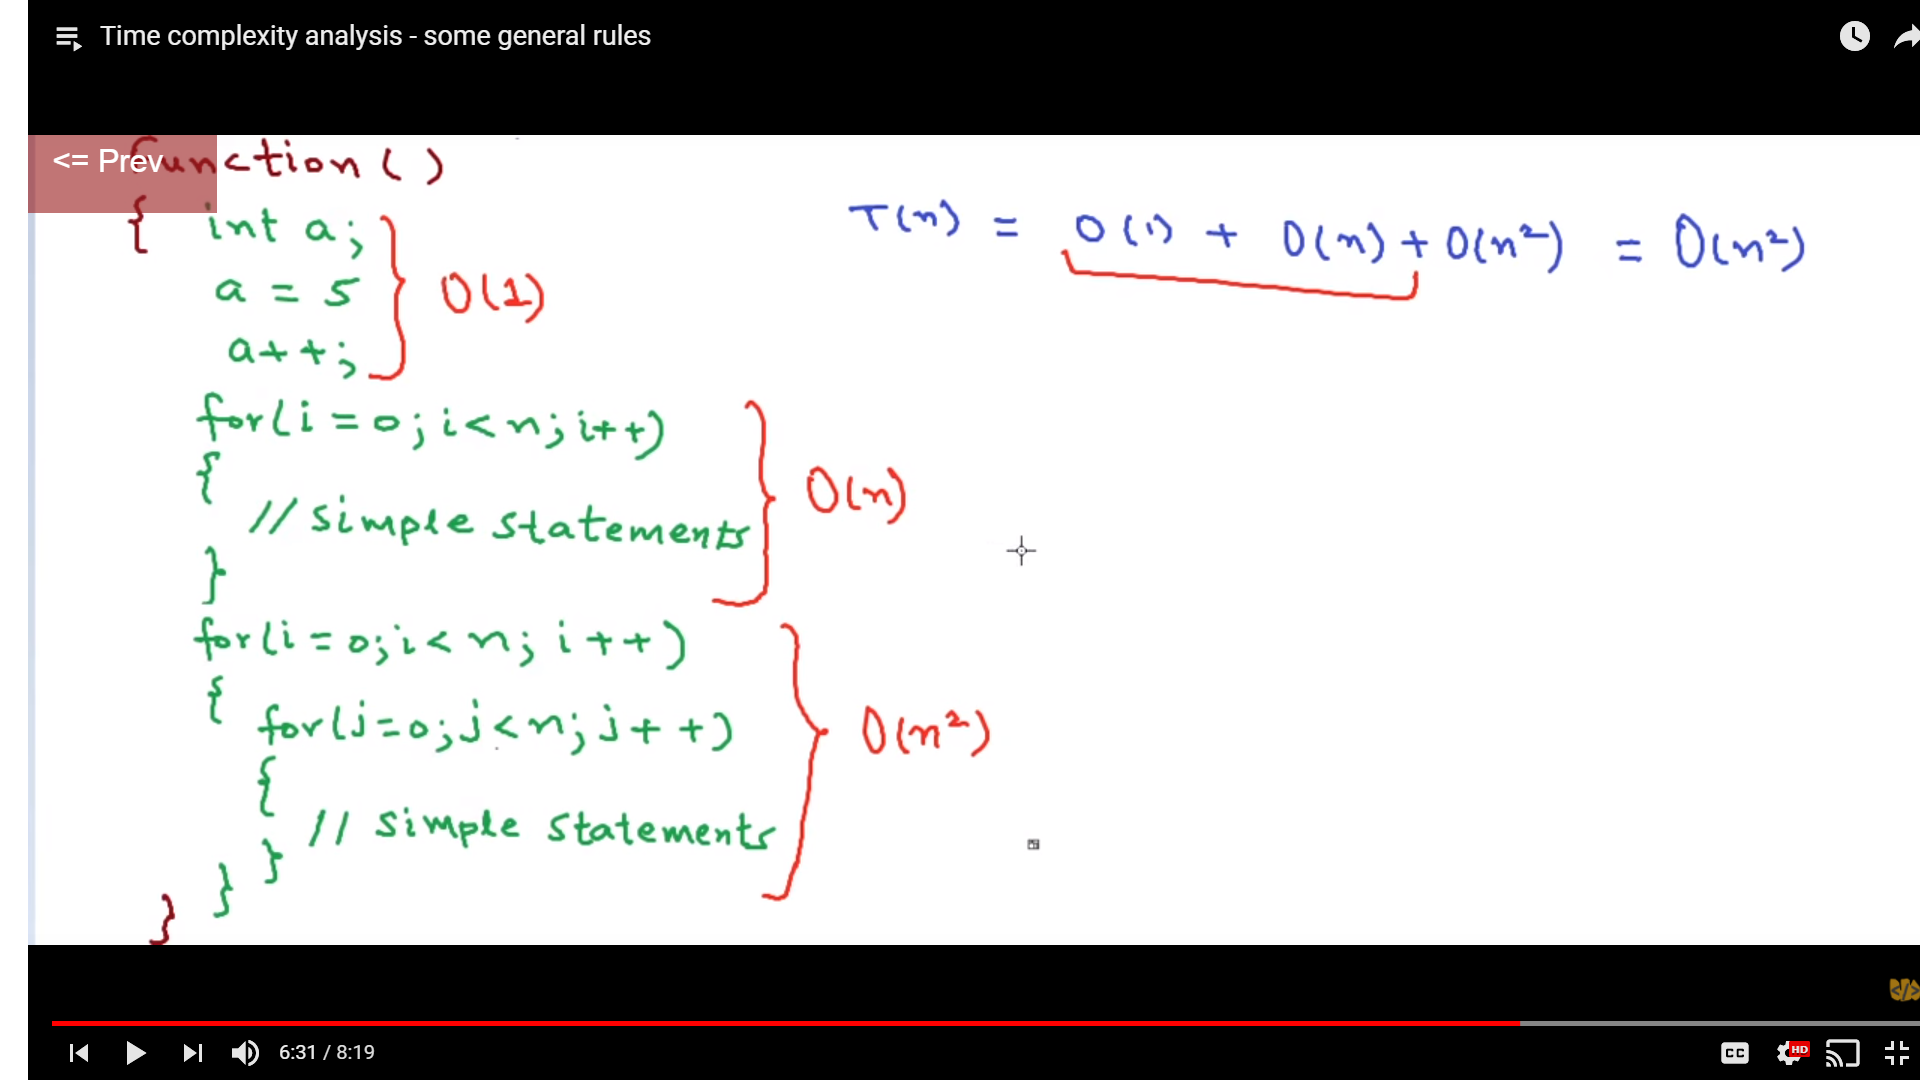 Time complexity analysis - some general rules
<= Prev
function()
{ int a;
a = 5
a++;
O(1)
T(n) = O(1) + O(n) + O(n²) = O(n²)
for(i = 0; i < n; i++)
{
// simple statements
}
O(n)
for(i = 0; i < n; i++)
{
for(j = 0; j < n; j++)
{
// simple statements
}
}
O(n²)
}
6:31 / 8:19
CC
HD